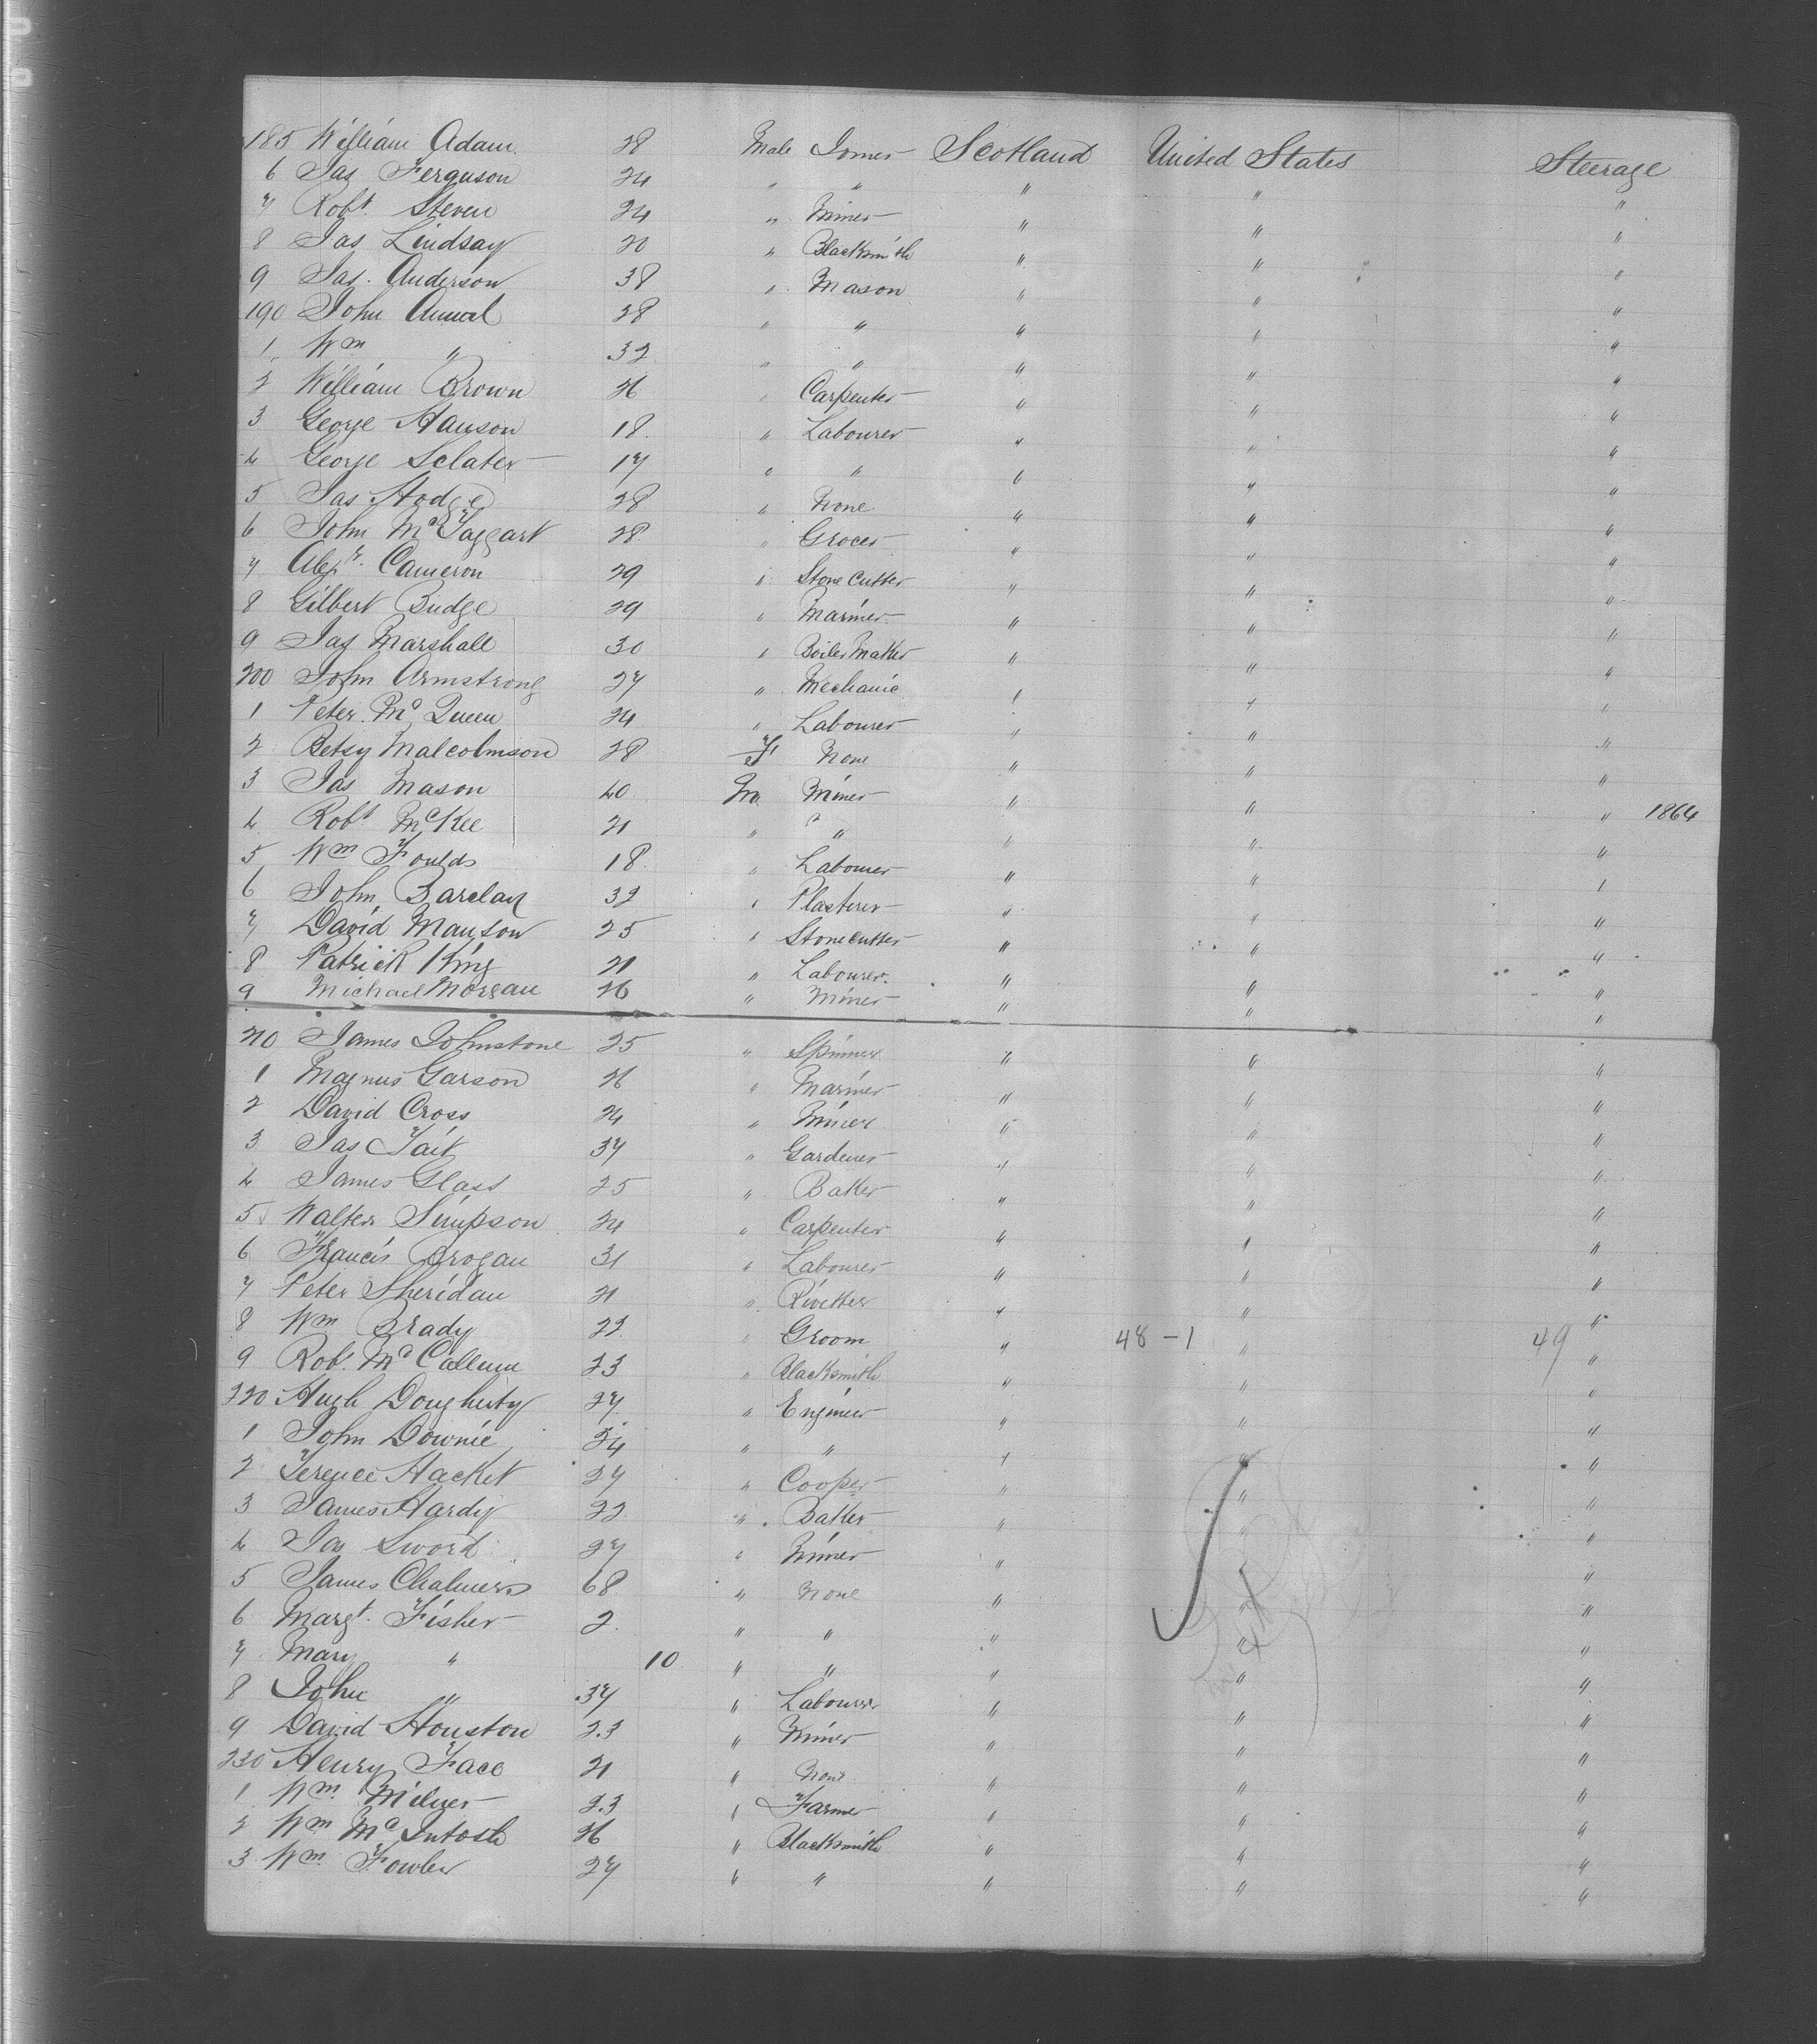 185 William Adam 28 Male Joiner Scotland United States Steerage
6 Jas Ferguson 24 " " " " "
7 Robt. Steven 24 " Miner " " "
8 Jas Lindsay 20 " Blacksmith " " "
9 Jas. Anderson 38 " Mason " " "
190 John Annal 28 " " " " "
1 Wm " 32 " " " " "
2 William Brown 26 " Carpenter " " "
3 George Manson 18 " Labourer " " "
4 George Sclater 17 " " " " "
5 Jas Hodge 28 " None " " "
6 John McTaggart 28 " Grocer " " "
7 Alexr. Cameron 29 " Stone Cutter " " "
8 Gilbert Budge 29 " Mariner " " "
9 Jas Marshall 30 " Boiler Maker " " "
200 John Armstrong 27 " Mechanic " " "
1 Peter McQueen 24 " Labourer " " "
2 Betsy Malcolmson 28 F None " " "
3 Jas Mason 40 M Miner " " "
4 Robt McKee 21 " " " " " 1864
5 Wm Foulds 18 " Labourer " " "
6 John Barclay 32 " Plasterer " " "
7 David Manson 25 " Stone cutter " " "
8 Patrick King 21 " Labourer " " "
9 Michael Morgan 26 " Miner " " "
210 James Johnstone 25 " Spinner " " "
1 Magnus Garson 26 " Mariner " " "
2 David Cross 24 " Miner " " "
3 Jas Tait 37 " Gardener " " "
4 James Glass 25 " Baker " " "
5 Walter Simpson 24 " Carpenter " " "
6 Francis Brogan 31 " Labourer " " "
7 Peter Sheridan 21 " Rivetter " " "
8 Wm Brady 22 " Groom " 48-1 " 49 "
9 Robt. McCallum 23 " Blacksmith " " "
220 Hugh Dougherty 27 " Engineer " " "
1 John Downie 24 " " " " "
2 Terence Hacket 27 " Cooper " " "
3 James Hardy 22 " Baker " " "
4 Jas Sword 27 " Miner " " "
5 James Chalmers 68 " None " " "
6 Margt. Fisher 2 " " " " "
7 Mary " 10 " " " " "
8 John " 37 " Labourer " " "
9 David Houston 23 " Miner " " "
230 Henry Face 21 " None " " "
1 Wm. Milner 23 " Farmer " " "
2 Wm McIntosh 26 " Blacksmith " " "
3 Wm. Fowler 27 " " " " "